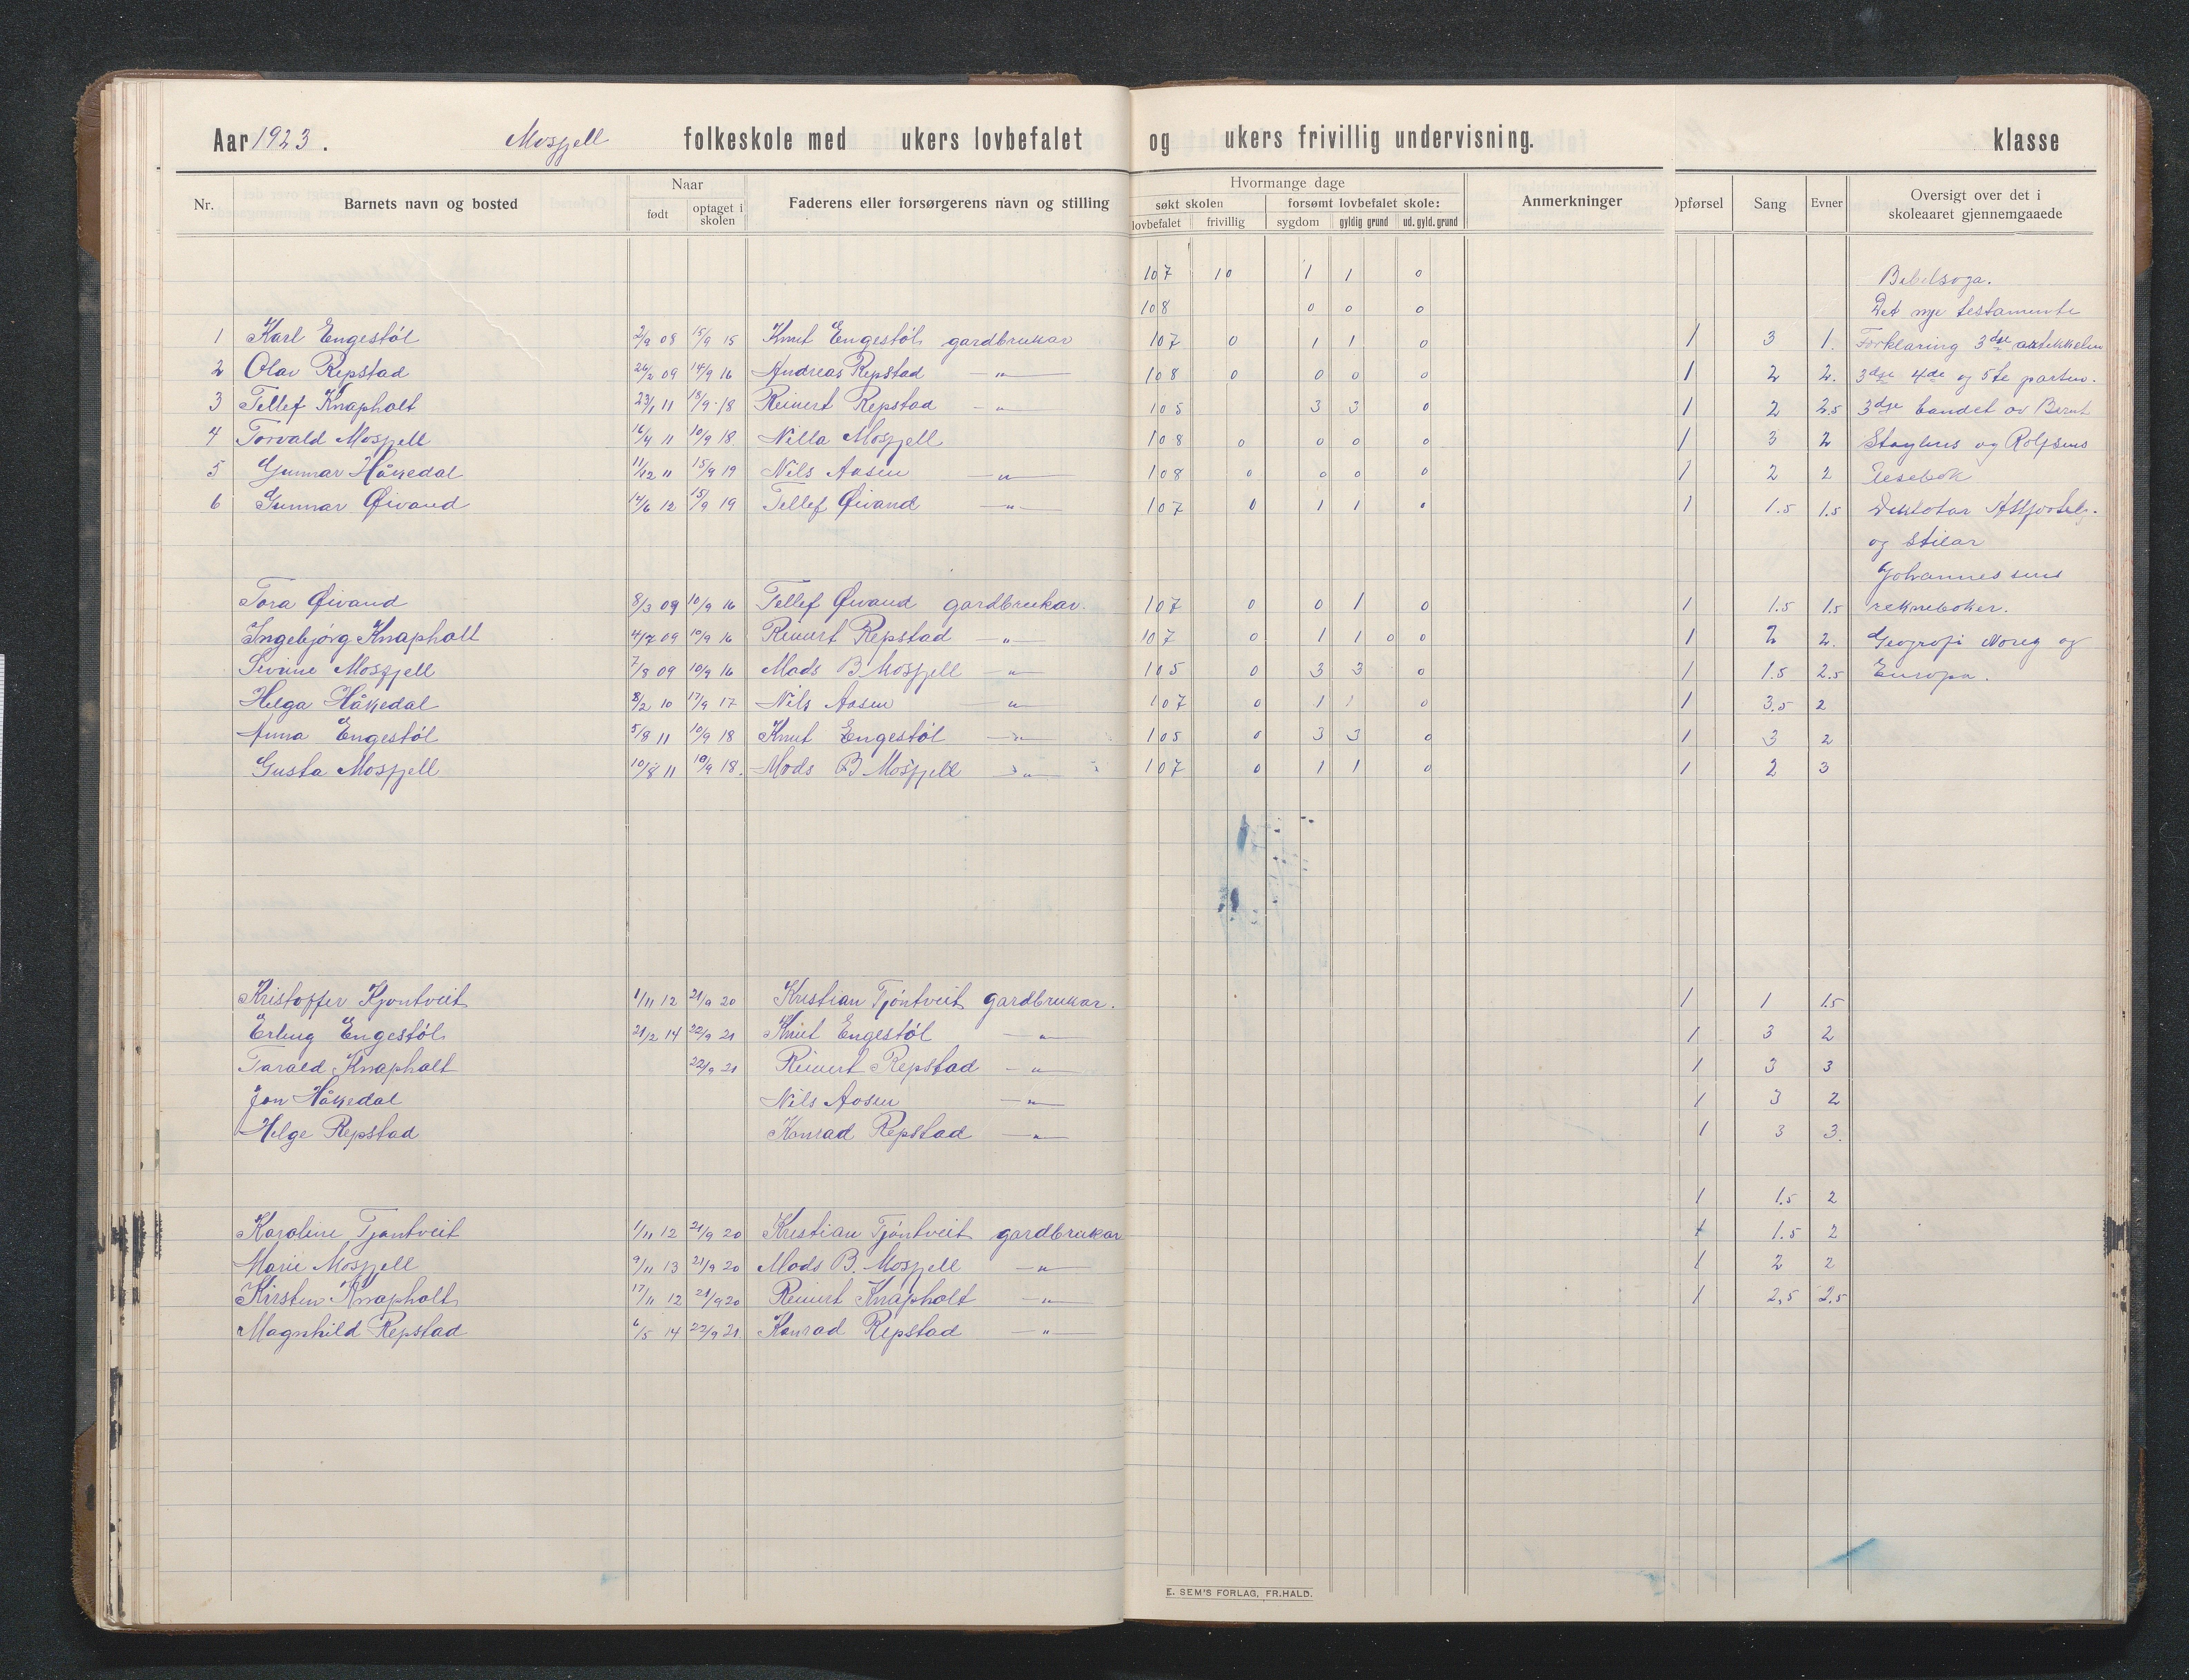 Aar 1923. Mosfjell folkeskole med ukers lovbefalet og ukers frivillig undervisning. klasse
Nr. Barnets navn og bosted Naar født optaget i skolen Faderens eller forsørgerens navn og stilling Hvormange dage søkt skolen lovbefalet frivillig forsømt lovbefalet skole: sygdom gyldig grund ud. gyld. grund Anmerkninger Opførsel Sang Evner Oversigt over det i skoleaaret gjennemgaaede
107 10 1 1 0 Bibelsoga.
108 0 0 0 Det nye testamente
1 Karl Engestøl 2/9 08 15/9 15 Knut Engestøl gardbrukar 107 0 1 1 0 1 3 1. Forklaring 3dje artikkelen
2 Olav Repstad 26/2 09 14/9 16 Andreas Repstad — " — 108 0 0 0 0 1 2 2. 3dje 4de og 5te parten.
3 Tellef Knapholt 23/1 11 18/9 18 Reinert Repstad — " — 105 3 3 0 1 2 2.5 3dje bandet av Bernt
4 Torvald Mosfjell 16/4 11 10/9 18 Nilla Mosfjell 108 0 0 0 0 1 3 2 Støylens og Rolfsens
5 Gunnar Håkedal 11/12 11 15/9 19 Nils Aasen — " — 108 0 0 0 0 1 2 2 Lesebok
6 Gunnar Øivand 14/6 12 15/9 19 Tellef Øivand — " — 107 0 1 1 0 1 1.5 1.5 Diktatar
og stilar
Johannessens
Tora Øivand 8/3 09 10/9 16 Tellef Øivand gardbrukar. 107 0 0 1 0 1 1.5 1.5 reknebøker.
Ingebjørg Knapholt 4/7 09 10/9 16 Reinert Repstad — " — 107 0 1 1 0 0 1 2 2. Geografi Noreg og
Sivine Mosfjell 7/8 09 10/9 16 Mads B. Mosfjell — " — 105 0 3 3 0 1 1.5 2.5 Europa.
Helga Håkedal 8/2 10 17/9 17 Nils Aasen — " — 107 0 1 1 0 1 3.5 2
Anna Engestøl 5/8 11 10/9 18 Knut Engestøl — " — 105 0 3 3 0 1 3 2
Gusta Mosfjell 10/8 11 10/9 18. Mads B Mosfjell — " — 107 0 1 1 0 1 2 3
Kristoffer Kjøntveit 1/11 12 21/9 20 Kristian Tjøntveit gardbrukar. 1 1 1.5
Erling Engestøl 21/2 14 22/9 21 Knut Engestøl — " — 1 3 2
Tarald Knapholt 22/9 21 Reinert Repstad — " — 1 3 3
Jon Håkedal Nils Aasen — " — 1 3 2
Helge Repstad Konrad Repstad — " — 1 3 3.
1 1.5 2
Karoline Tjøntveit 1/11 12 21/9 20 Kristian Tjøntveit gardbrukar 1 1.5 2
Marie Mosfjell 9/11 13 21/9 20 Mads B. Mosfjell — " — 1 2 2
Kirsten Knapholt 17/11 12 21/9 20 Reinert Knapholt — " — 1 2,5 2.5
Magnhild Repstad 6/5 14 22/9 21 Konrad Repstad — " —
E. SEM'S FORLAG, FR.HALD.